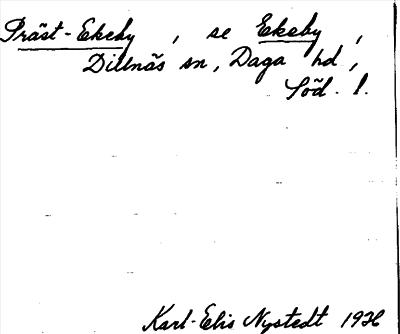 Präst-Ekeby, se Ekeby,
Dillnäs sn, Daga hd,
Söd. l.
Karl-Elis Nystedt 1926